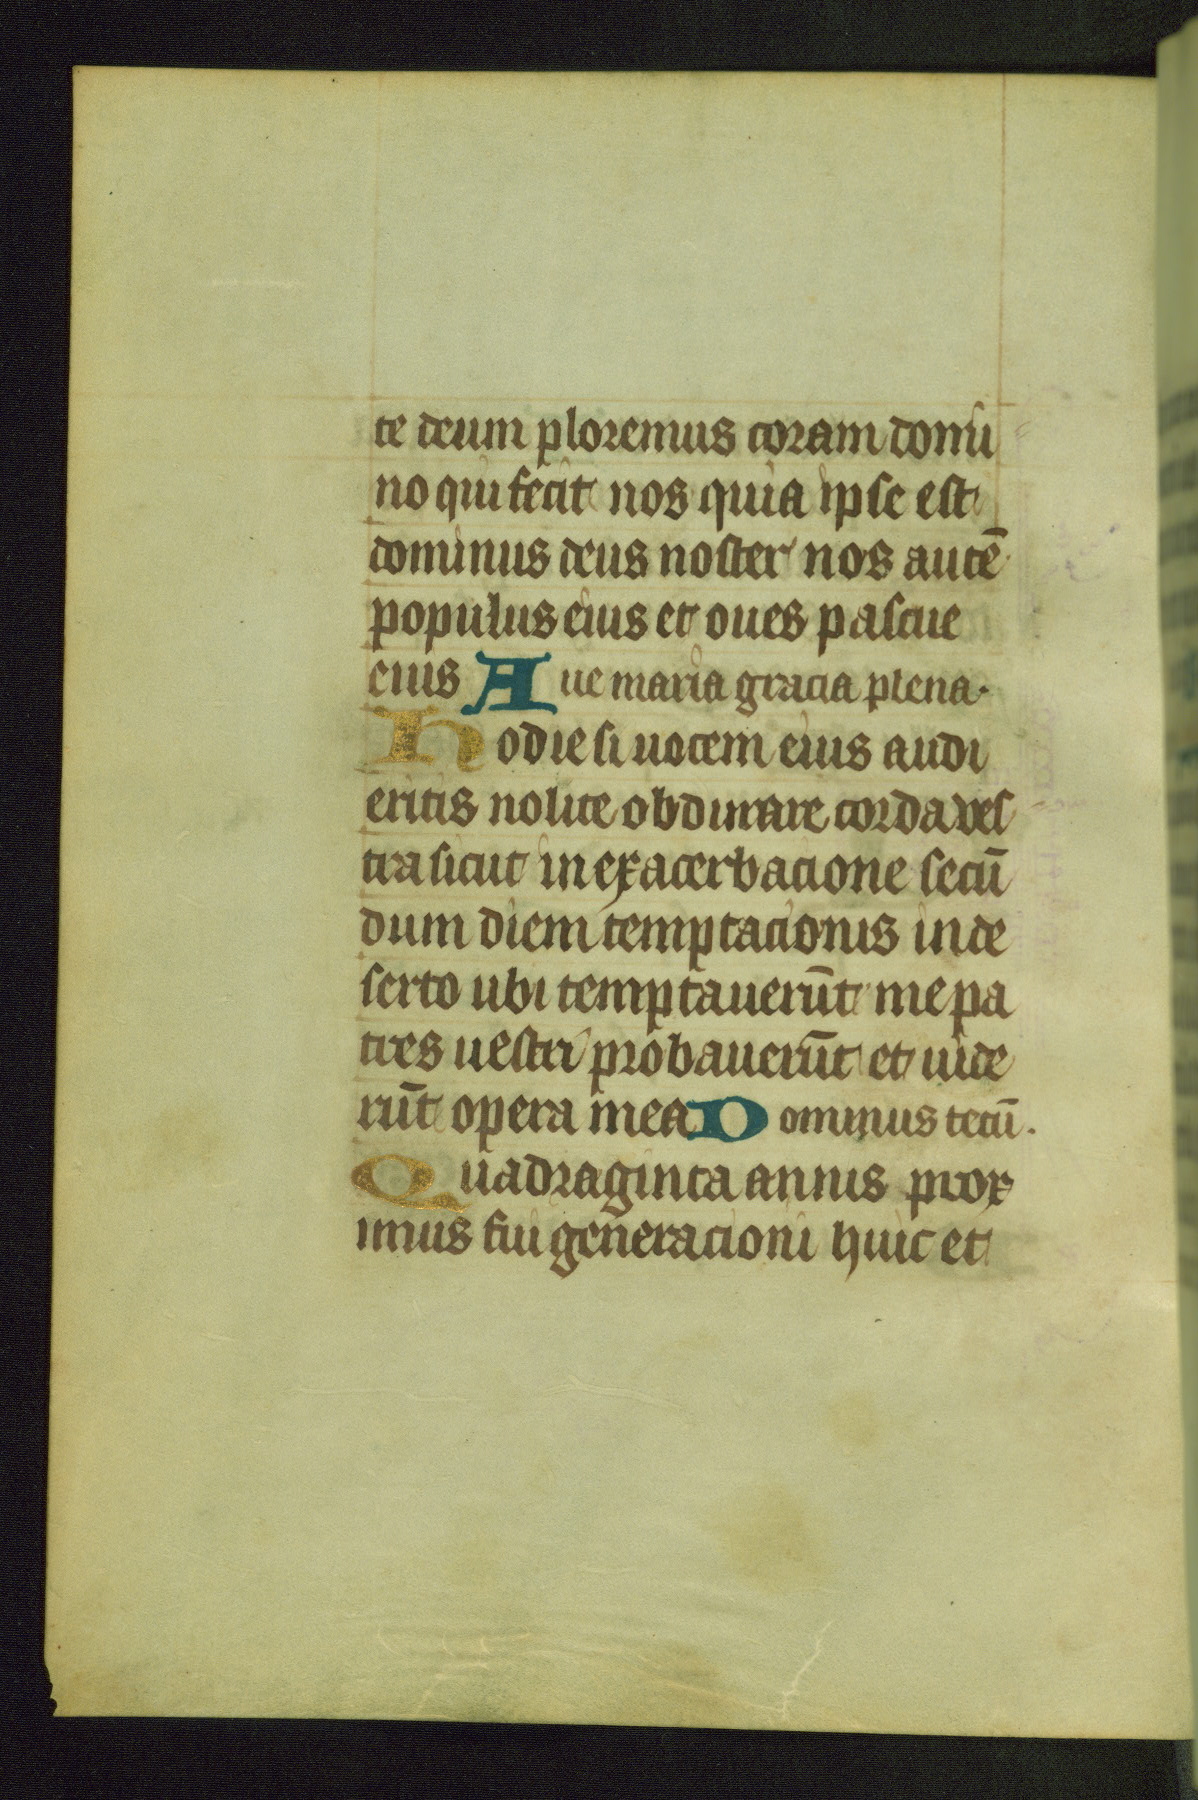 te deum ploremus coram domi
no qui fecit nos quia ipse est
dominus deus noster nos autē
populus eius et oues pascue
eius Aue maria gracia plena.
Hodie si uocem eius audi
eritis nolite obdurare corda ves
tra sicut in exacerbacione secū
dum diem temptacionis in de
serto ubi temptauerūt me pa
tres uestri probauerūt et uide
rūt opera mea Dominus tecū.
Quadraginta annis prox
imus fui generacioni huic et